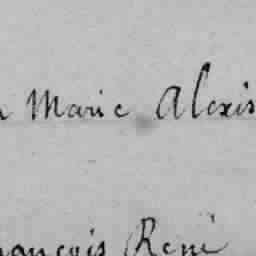 Marie Alexis
François René